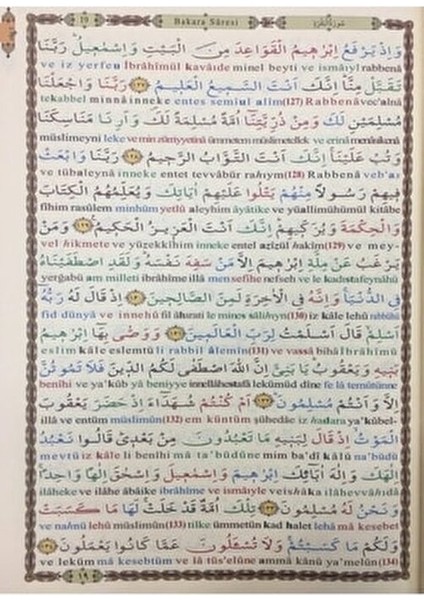 19 Bakara Sûresi سورة البقرة
وَاِذْ يَرْفَعُ اِبْرٰه۪يمُ الْقَوَاعِدَ مِنَ الْبَيْتِ وَاِسْمٰع۪يلُ رَبَّنَا
ve iz yerfeu İbrâhîmül kavâide minel beyti ve ismâıyl rabbenâ
تَقَبَّلْ مِنَّا اِنَّكَ اَنْتَ السَّم۪يعُ الْعَل۪يمُ ﴿١٢٧﴾ رَبَّنَا وَاجْعَلْنَا
tekabbel minnâ inneke entes semîul alîm(127) Rabbenâ vec'alnâ
مُسْلِمَيْنِ لَكَ وَمِنْ ذُرِّيَّتِنَٓا اُمَّةً مُسْلِمَةً لَكَ وَاَرِنَا مَنَاسِكَنَا
müslimeyni leke ve min zürriyyetinâ ümmetem müslimetellek ve erinâ menâsikenâ
وَتُبْ عَلَيْنَا اِنَّكَ اَنْتَ التَّوَّابُ الرَّح۪يمُ ﴿١٢٨﴾ رَبَّنَا وَابْعَثْ
ve tübaleynâ inneke entet tevvâbür rahıym (128) Rabbenâ veb'as
ف۪يهِمْ رَسُولًا مِنْهُمْ يَتْلُوا عَلَيْهِمْ اٰيَاتِكَ وَيُعَلِّمُهُمُ الْكِتَابَ
fîhim rasûlem minhüm yetlû aleyhim âyâtike ve yüallimühümül kitâbe
وَالْحِكْمَةَ وَيُزَكّ۪يهِمْ اِنَّكَ اَنْتَ الْعَز۪يزُ الْحَك۪يمُ ﴿١٢٩﴾ وَمَنْ
vel hikmete ve yüzekkîhim inneke entel azîzül hakîm(129) ve mey-
يَرْغَبُ عَنْ مِلَّةِ اِبْرٰه۪يمَ اِلَّا مَنْ سَفِهَ نَفْسَهُ وَلَقَدِ اصْطَفَيْنَاهُ
yerğabü am milleti ibrâhîme illâ men sefihe nefseh ve le kadıstafeynâhü
فِي الدُّنْيَا وَاِنَّهُ فِي الْاٰخِرَةِ لَمِنَ الصَّالِح۪ينَ ﴿١٣٠﴾ اِذْ قَالَ لَهُ رَبُّهُ
fid dünyâ ve innehû fil âhırati le mines sâlihıyn(130) iz kâle lehû rabbühû
اَسْلِمْ قَالَ اَسْلَمْتُ لِرَبِّ الْعَالَم۪ينَ ﴿١٣١﴾ وَوَصّٰى بِهَٓا اِبْرٰه۪يمُ
eslim kâle eslemtü li rabbil âlemîn(131) ve vassâ bihâ İbrâhîmü
بَن۪يهِ وَيَعْقُوبُ يَا بَنِيَّ اِنَّ اللّٰهَ اصْطَفٰى لَكُمُ الدّ۪ينَ فَلَا تَمُوتُنَّ
benîhi ve ya'kûb yâ beniyye innellâhestafâ lekümüd dîne fe lâ temûtünne
اِلَّا وَاَنْتُمْ مُسْلِمُونَ ﴿١٣٢﴾ اَمْ كُنْتُمْ شُهَدَٓاءَ اِذْ حَضَرَ يَعْقُوبَ
illâ ve entüm müslimûn(132) em küntüm şühedâe iz hadara ya'kûbel-
الْمَوْتُ اِذْ قَالَ لِبَن۪يهِ مَا تَعْبُدُونَ مِنْ بَعْد۪ي قَالُوا نَعْبُدُ
mevtü iz kâle li benîhi mâ ta'büdûne mim ba'dî kâlû na'büdü
اِلٰهَكَ وَاِلٰهَ اٰبَٓائِكَ اِبْرٰه۪يمَ وَاِسْمٰع۪يلَ وَاِسْحٰقَ اِلٰهًا وَاحِدًا
ilâheke ve ilâhe âbâike ibrâhîme ve ismâıyle ve ishâka ilâhevvâhıdâ
وَنَحْنُ لَهُ مُسْلِمُونَ ﴿١٣٣﴾ تِلْكَ اُمَّةٌ قَدْ خَلَتْ لَهَا مَا كَسَبَتْ
ve nahnü lehû müslimûn(133) tilke ümmetün kad halet lehâ mâ kesebet
وَلَكُمْ مَا كَسَبْتُمْ وَلَا تُسْـَٔلُونَ عَمَّا كَانُوا يَعْمَلُونَ ﴿١٣٤﴾
ve leküm mâ kesebtüm ve lâ tüs'elûne ammâ kânû ya'melûn(134)
١٩